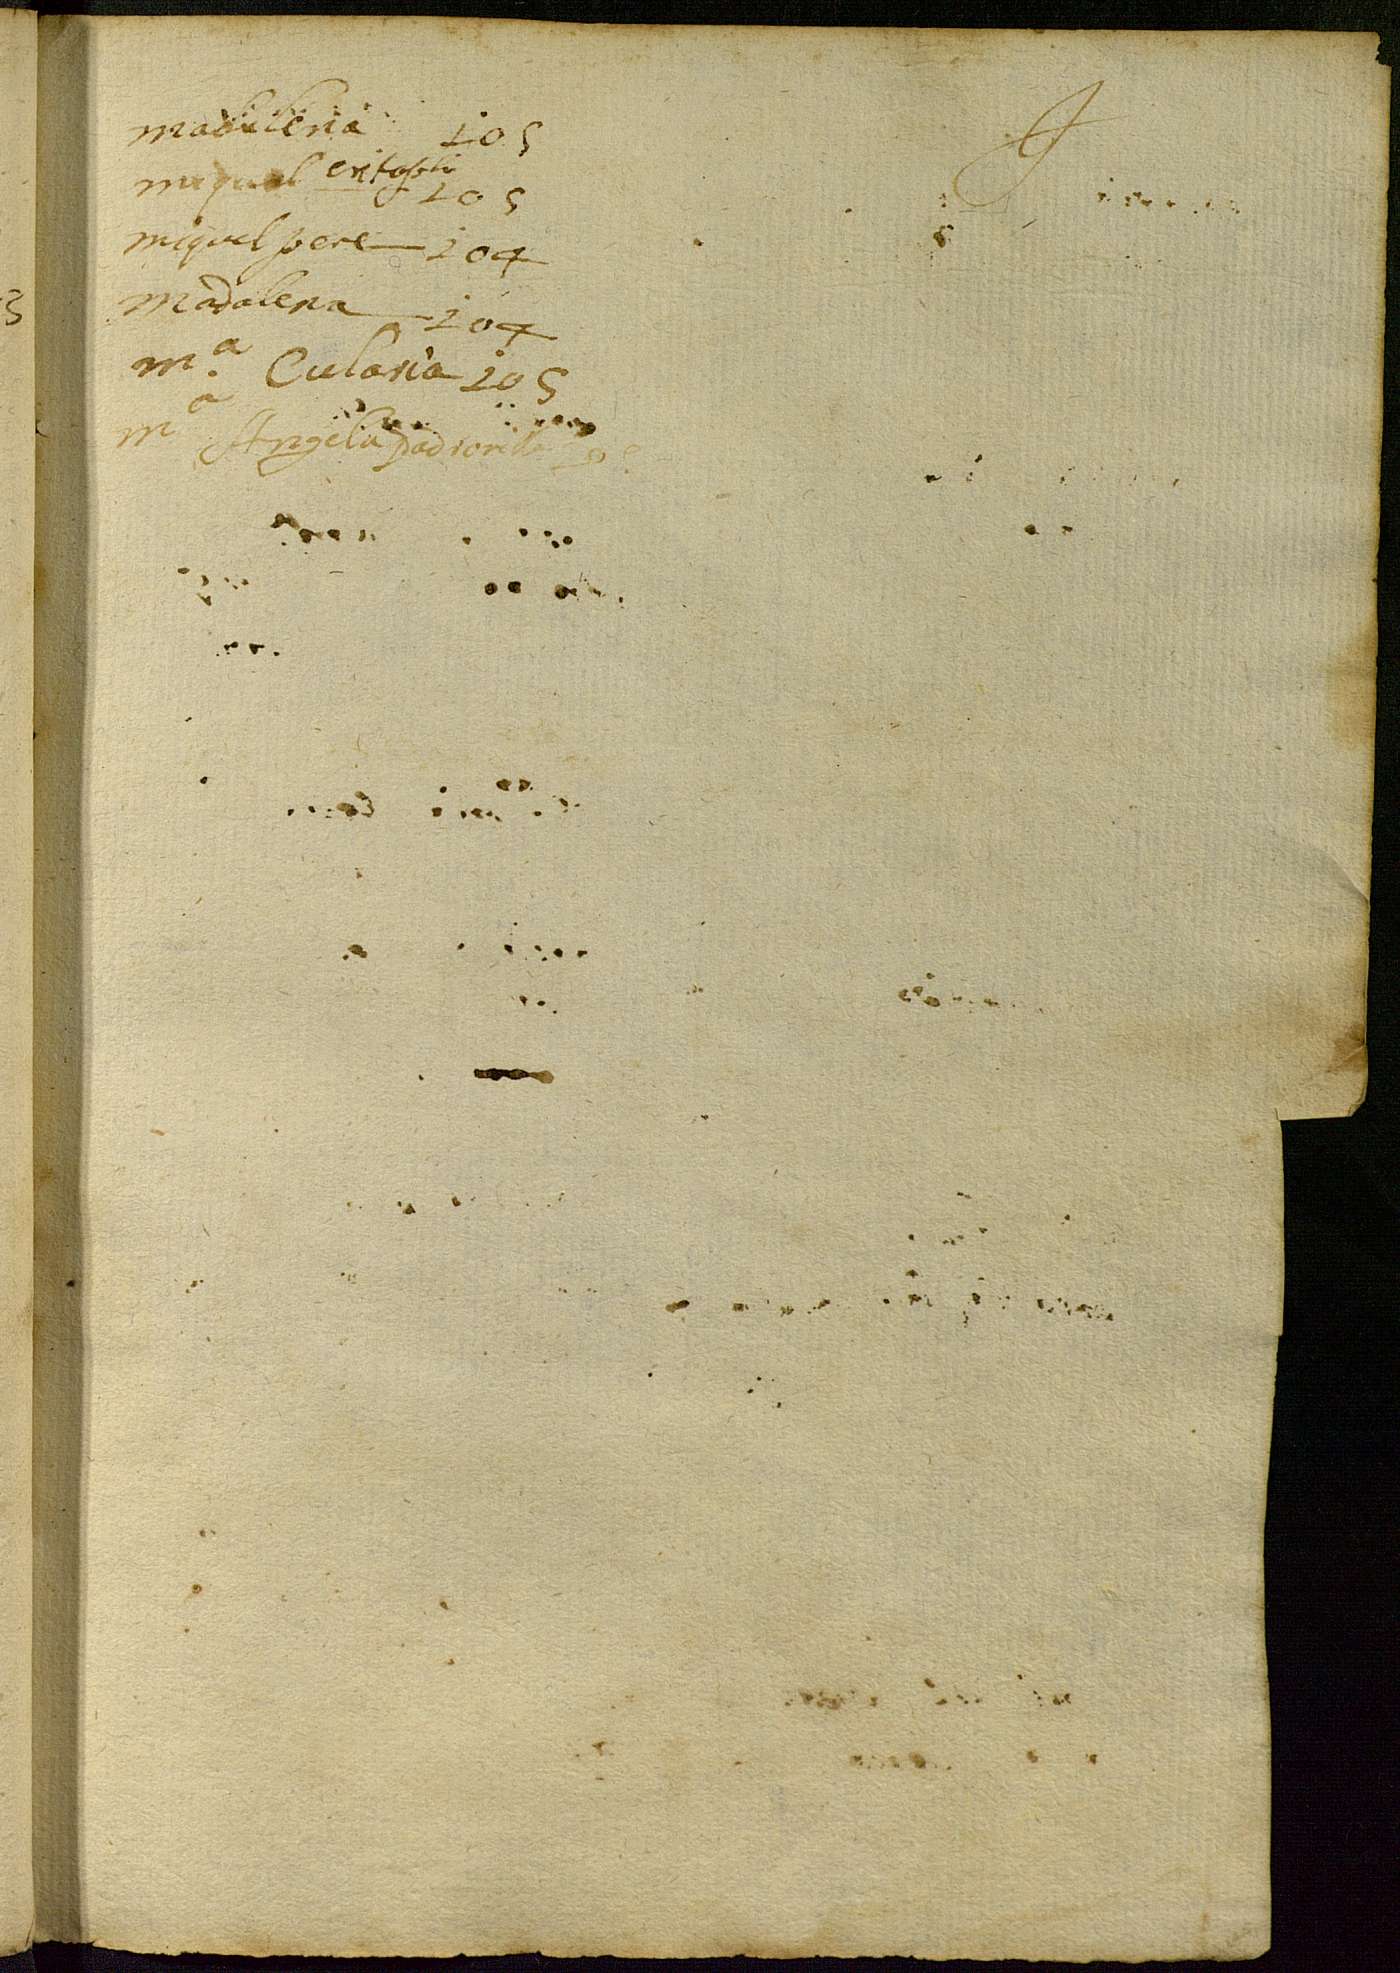 madalena 105
miquel 105
miquel pere 104
Madalena 104
m.ª Eularia 105
mª Angela